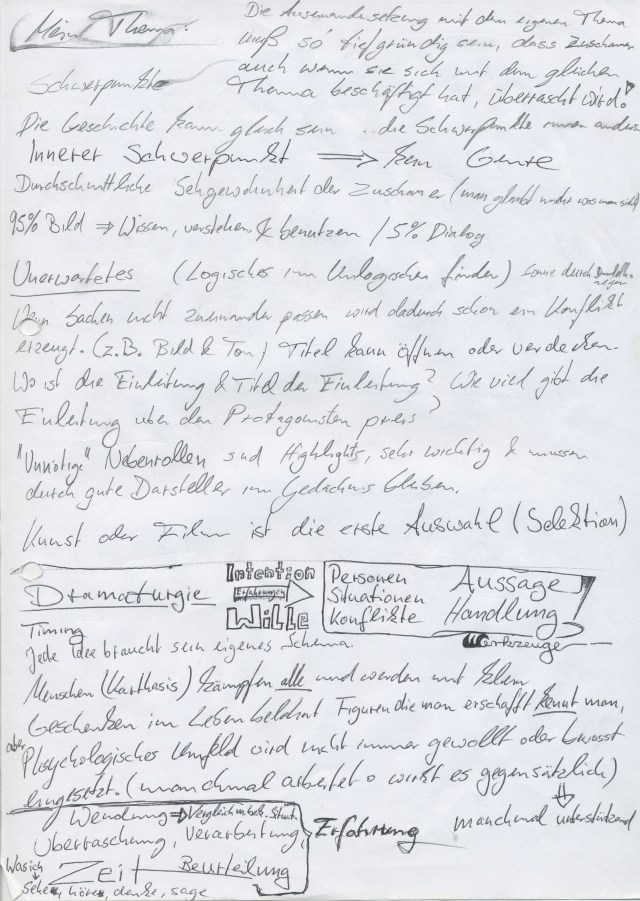 Mein Thema:
Die Auseinandersetzung mit dem eigenen Thema
muß so tiefgründig sein, dass Zuschauer
auch wenn sie sich mit dem gleichen
Thema beschäftigt hat, überrascht wird!
Schwerpunkte
Die Geschichte kann gleich sein ... die Schwerpunkte nur anders
Innerer Schwerpunkt ⇒ kein Genre
Durchschnittliche Sehgewohnheit der Zuschauer (man glaubt was man sieht)
95% Bild ⇒ Wissen, verstehen & benutzen / 5% Dialog
Unerwartetes (Logisches im Unlogischen finden) sowie durch
Wenn Sachen nicht zueinander passen wird dadurch schon ein Konflikt
erzeugt. (z.B. Bild & Ton) Titel kann öffnen oder verdecken.
Wo ist die Einleitung & Titel der Einleitung? Wie viel gibt die
Einleitung über den Protagonisten preis?
"Unnötige" Nebenrollen sind Highlights, sehr wichtig & müssen
durch gute Darsteller im Gedächnis bleiben.
Kunst oder Film ist die erste Auswahl (Selektion)
Dramaturgie
Intention
Erfahrungen
Wille
Personen
Situationen
Konflikte
Aussage
Handlung
Werkzeuge
Timing
Jede Idee braucht sein eigenes Schema.
Menschen (Karthasis) kämpfen alle und werden mit klein
Geschenken im Leben belohnt Figuren die man erschafft kennt man,
aber
Phsychologisches Umfeld wird nicht immer gewollt oder bwusst
eingesetzt. (manchmal arbeitet o wirkt es gegensätzlich)
manchmal unterstützend
Wendung ⇒ Vergleich Situat.
Überraschung, Verarbeitung,
Erfahrung
Zeit Beurteilung
Was ich
sehe, höre, denke, sage